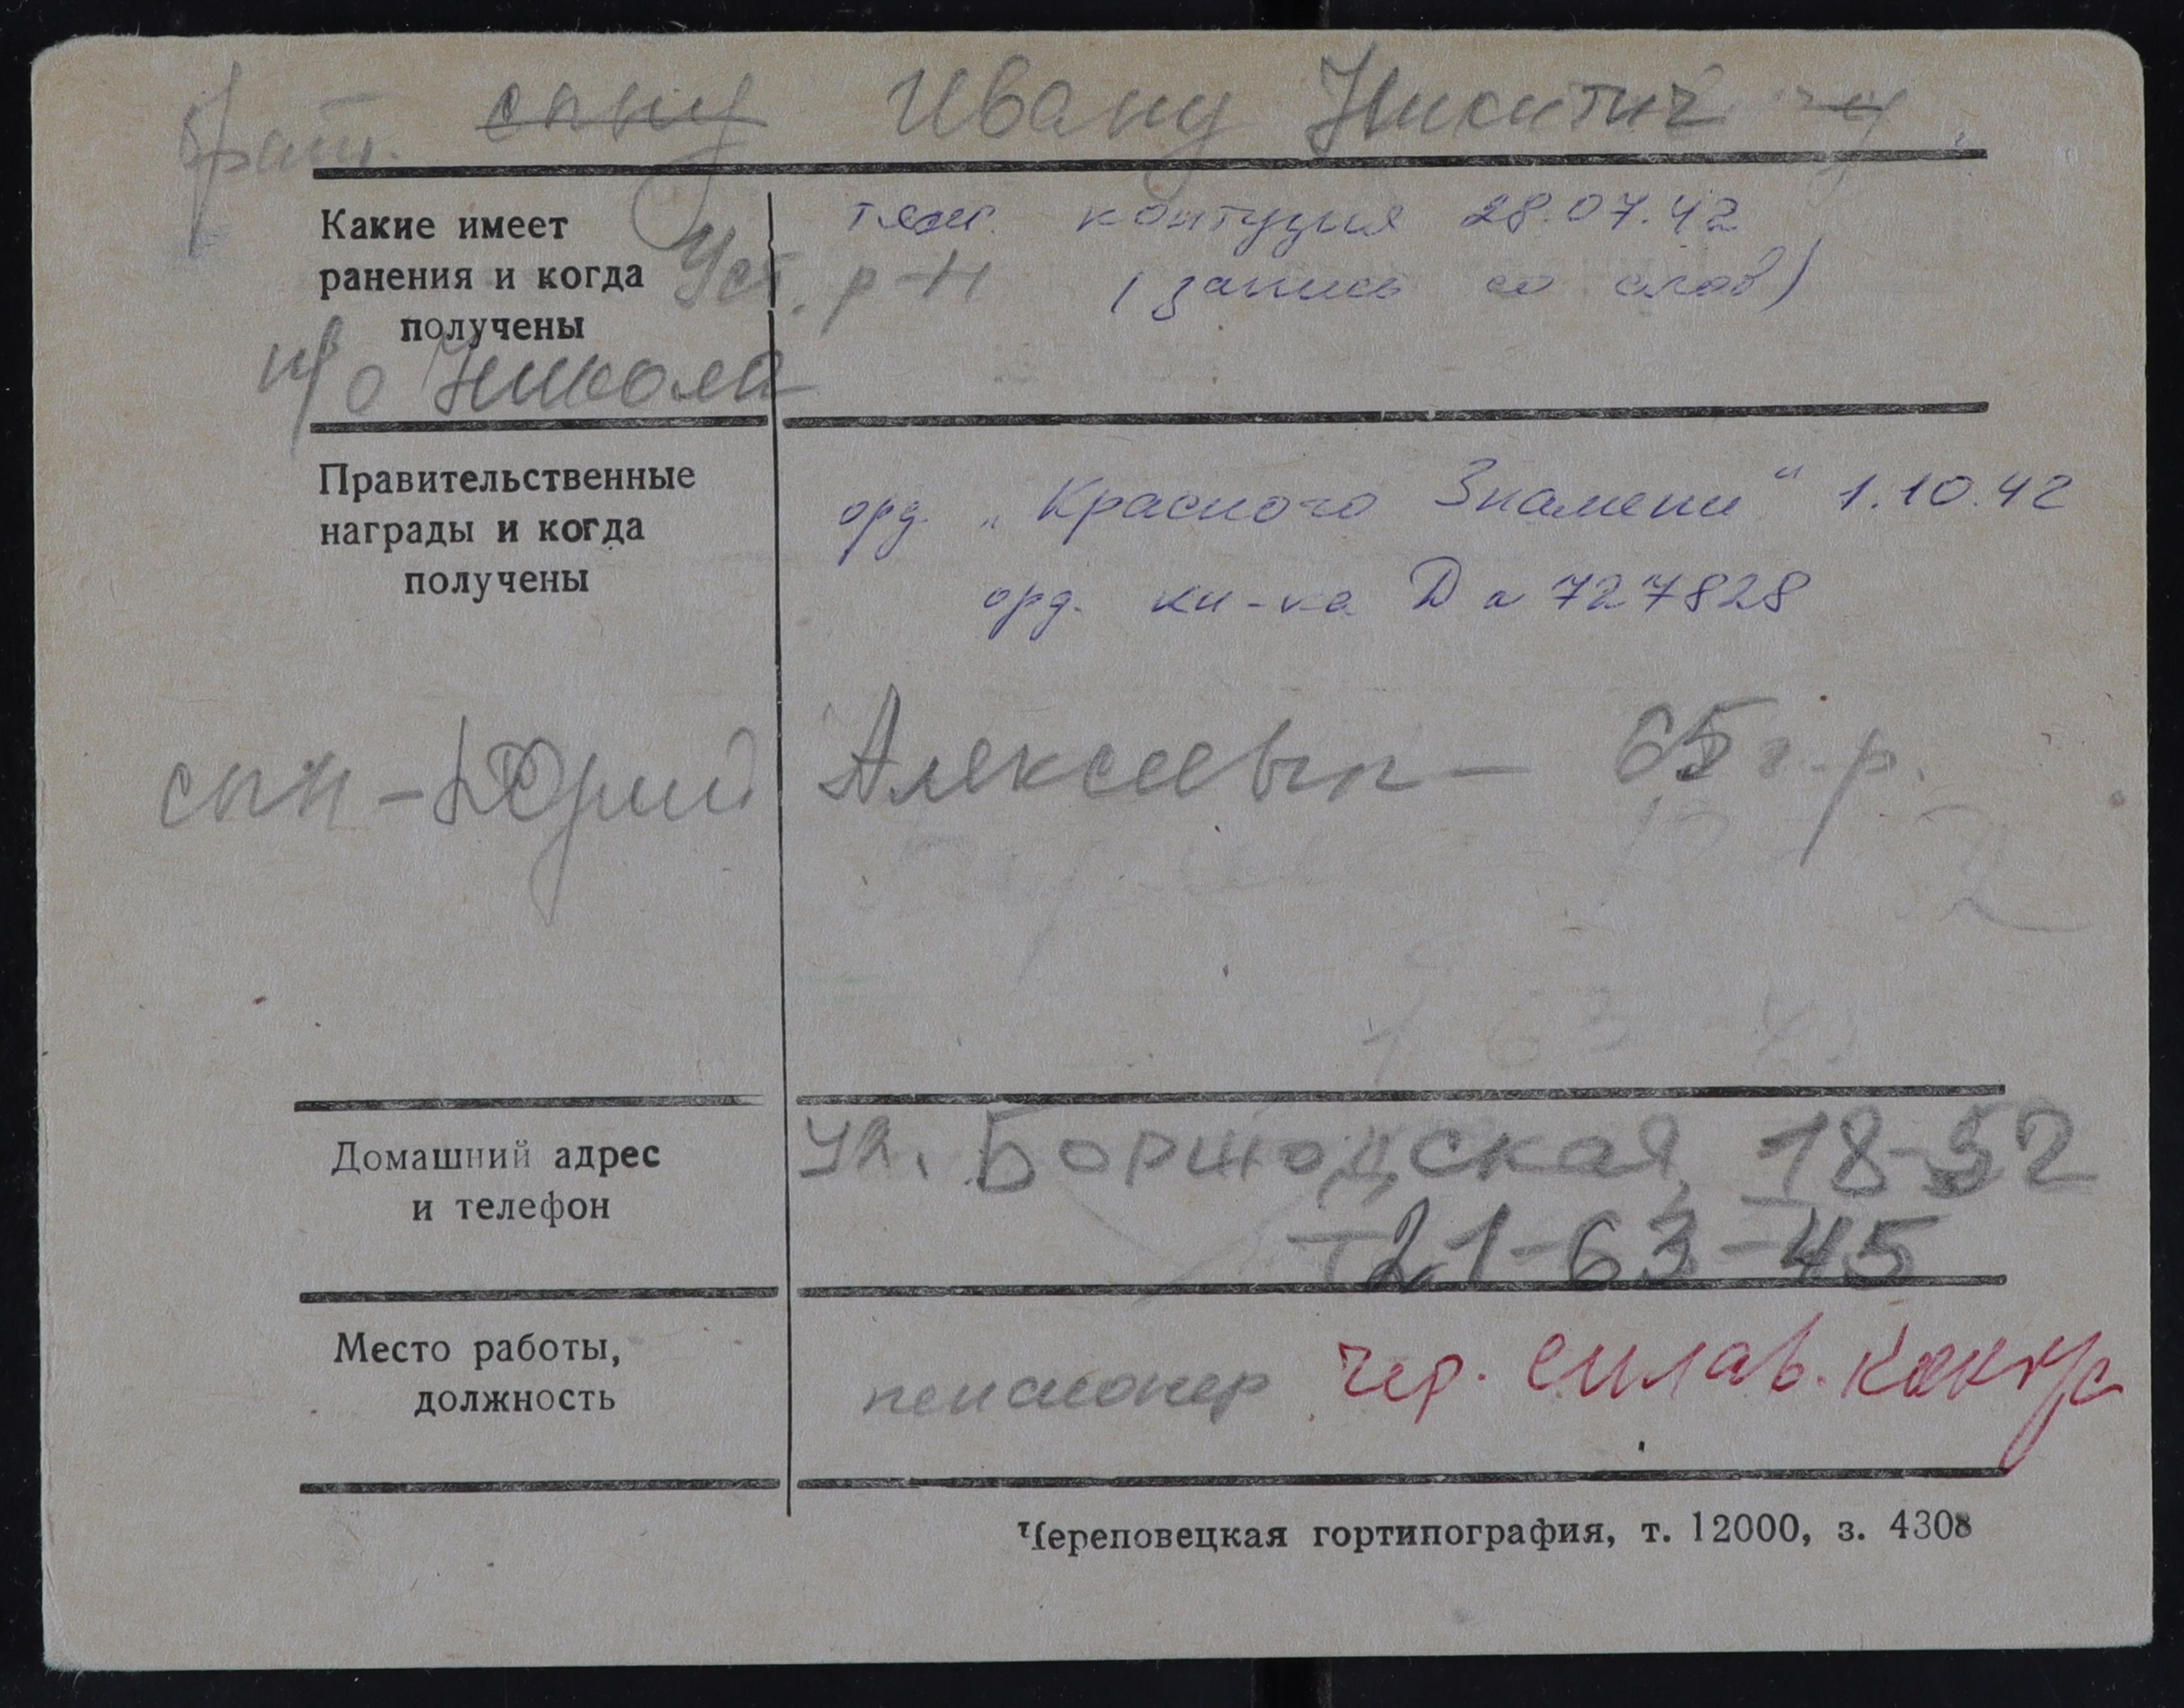 брату. сыну Ивану Никитичу.
Какие имеет
ранения и когда
получены
тяж. контузия 28.07.42
Уст. р-н (запись со слов)
п/о Никола
Правительственные
награды и когда
получены
орд. „Красного Знамени“ 1.10.42
орд. кн-ка Д № 727828
сын - Юрий Алексеевич - 65 г.р.
Домашний адрес
и телефон
ул. Боршодская 18-52
т 21-63-45
Место работы,
должность
пенсионер чер. сплав. контора
Череповецкая гортипография, т. 12000, з. 4308